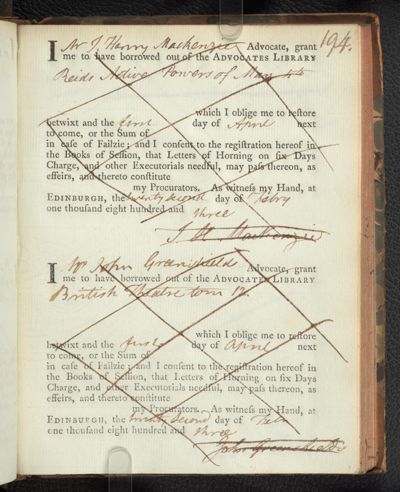 194.
I Mr J. Henry Mackenzie Advocate, grant
me to have borrowed out of the ADVOCATES LIBRARY
Reids Active Powers of Man 4to
which I oblige me to reſtore
betwixt and the first day of April next
to come, or the Sum of
in caſe of Failzie; and I conſent to the regiſtration hereof in
the Books of Seſſion, that Letters of Horning on ſix Days
Charge, and other Executorials needful, may paſs thereon, as
effeirs, and thereto conſtitute
my Procurators. As witneſs my Hand, at
EDINBURGH, the twenty second day of Febry
one thouſand eight hundred and three
J. H. Mackenzie
I Mr John Greenshield Advocate, grant
me to have borrowed out of the ADVOCATES LIBRARY
British Theatre tom
which I oblige me to reſtore
betwixt and the first day of April next
to come, or the Sum of
in caſe of Failzie; and I conſent to the regiſtration hereof in
the Books of Seſſion, that Letters of Horning on ſix Days
Charge, and other Executorials needful, may paſs thereon, as
effeirs, and thereto conſtitute
my Procurators. As witneſs my Hand, at
EDINBURGH, the twenty second day of Feb
one thouſand eight hundred and three
John Greenshields